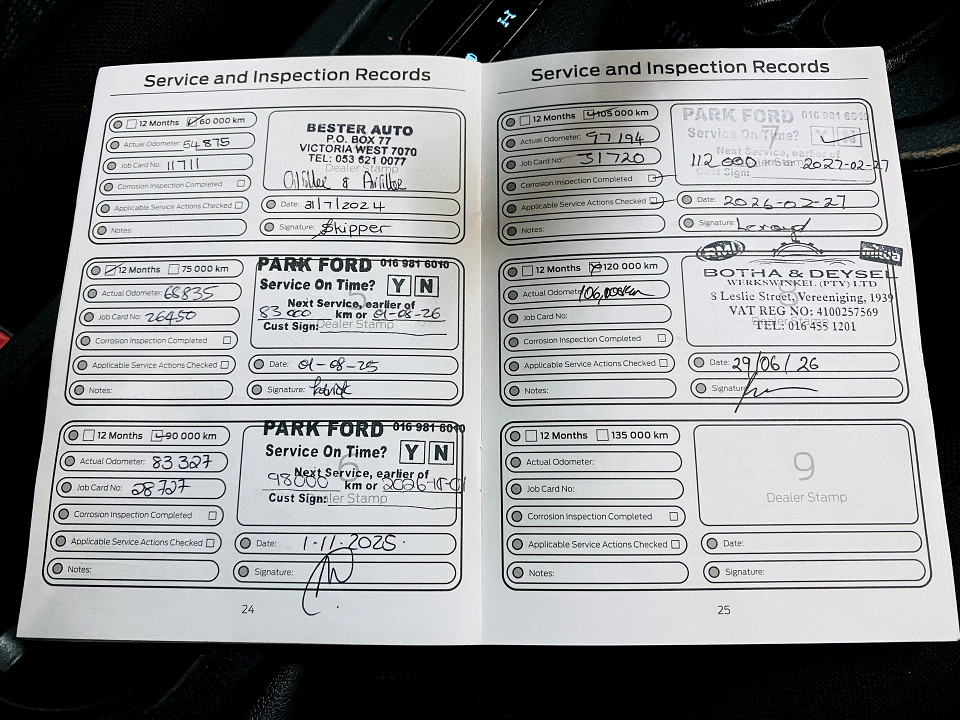 Service and Inspection Records
12 Months 60 000 km
Actual Odometer: 54 875
Job Card No: 11711
Corrosion Inspection Completed
Applicable Service Actions Checked
Notes:
BESTER AUTO
P.O. BOX 77
VICTORIA WEST 7070
TEL: 053 621 0077
Dealer Stamp
Oilfilter & Airfilter
Date: 31/7/2024
Signature: Skipper
12 Months 75 000 km
Actual Odometer: 68835
Job Card No: 26450
Corrosion Inspection Completed
Applicable Service Actions Checked
Notes:
PARK FORD 016 981 6010
Service On Time? Y N
5
Next Service, earlier of
83 000 km or 01-08-26
Cust Sign: Dealer Stamp
Date: 01-08-25
Signature: Patrick
12 Months 90 000 km
Actual Odometer: 83 327
Job Card No: 28727
Corrosion Inspection Completed
Applicable Service Actions Checked
Notes:
PARK FORD 016 981 6010
Service On Time? Y N
6
Next Service, earlier of
98000 km or 2026-11-01
Cust Sign: Dealer Stamp
Date: 1.11.2025.
Signature:
24
Service and Inspection Records
12 Months 105 000 km
Actual Odometer: 97194
Job Card No: 31720
Corrosion Inspection Completed
Applicable Service Actions Checked
Notes:
PARK FORD 016 981 6010
7
Service On Time? Y N
Next Service, earlier of
112 000 km or 2027-02-27
Cust Sign:
Date: 2026-02-27
Signature:
12 Months 120 000 km
Actual Odometer: 106,000km
Job Card No:
Corrosion Inspection Completed
Applicable Service Actions Checked
Notes:
RMI
BOTHA & DEYSEL
WERKSWINKEL (PTY) LTD
8
8 Leslie Street, Vereeniging, 1939
VAT REG NO: 4100257569
Dealer Stamp
TEL: 016 455 1201
Date: 29/06/26
Signature:
12 Months 135 000 km
Actual Odometer:
Job Card No:
Corrosion Inspection Completed
Applicable Service Actions Checked
Notes:
9
Dealer Stamp
Date:
Signature:
25